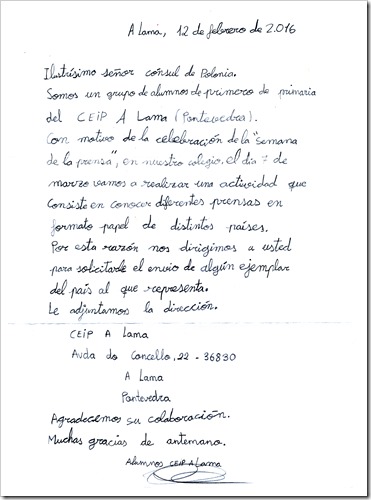 A Lama, 12 de febrero de 2.016
Ilustrísimo señor cónsul de Polonia.
Somos un grupo de alumnos de primero de primaria
del CEIP A Lama (Pontevedra).
Con motivo de la celebración de la "Semana
de la prensa", en nuestro colegio, el día 7 de
marzo vamos a realizar una actividad que
consiste en conocer diferentes prensas en
formato papel de distintos países.
Por esta razón nos dirigimos a usted
para solicitarle el envío de algún ejemplar
del país al que representa.
Le adjuntamos la dirección.
CEIP A Lama
Avda do Concello, 22 - 36830
A Lama
Pontevedra
Agradecemos su colaboración.
Muchas gracias de antemano.
Alumnos CEIP A Lama